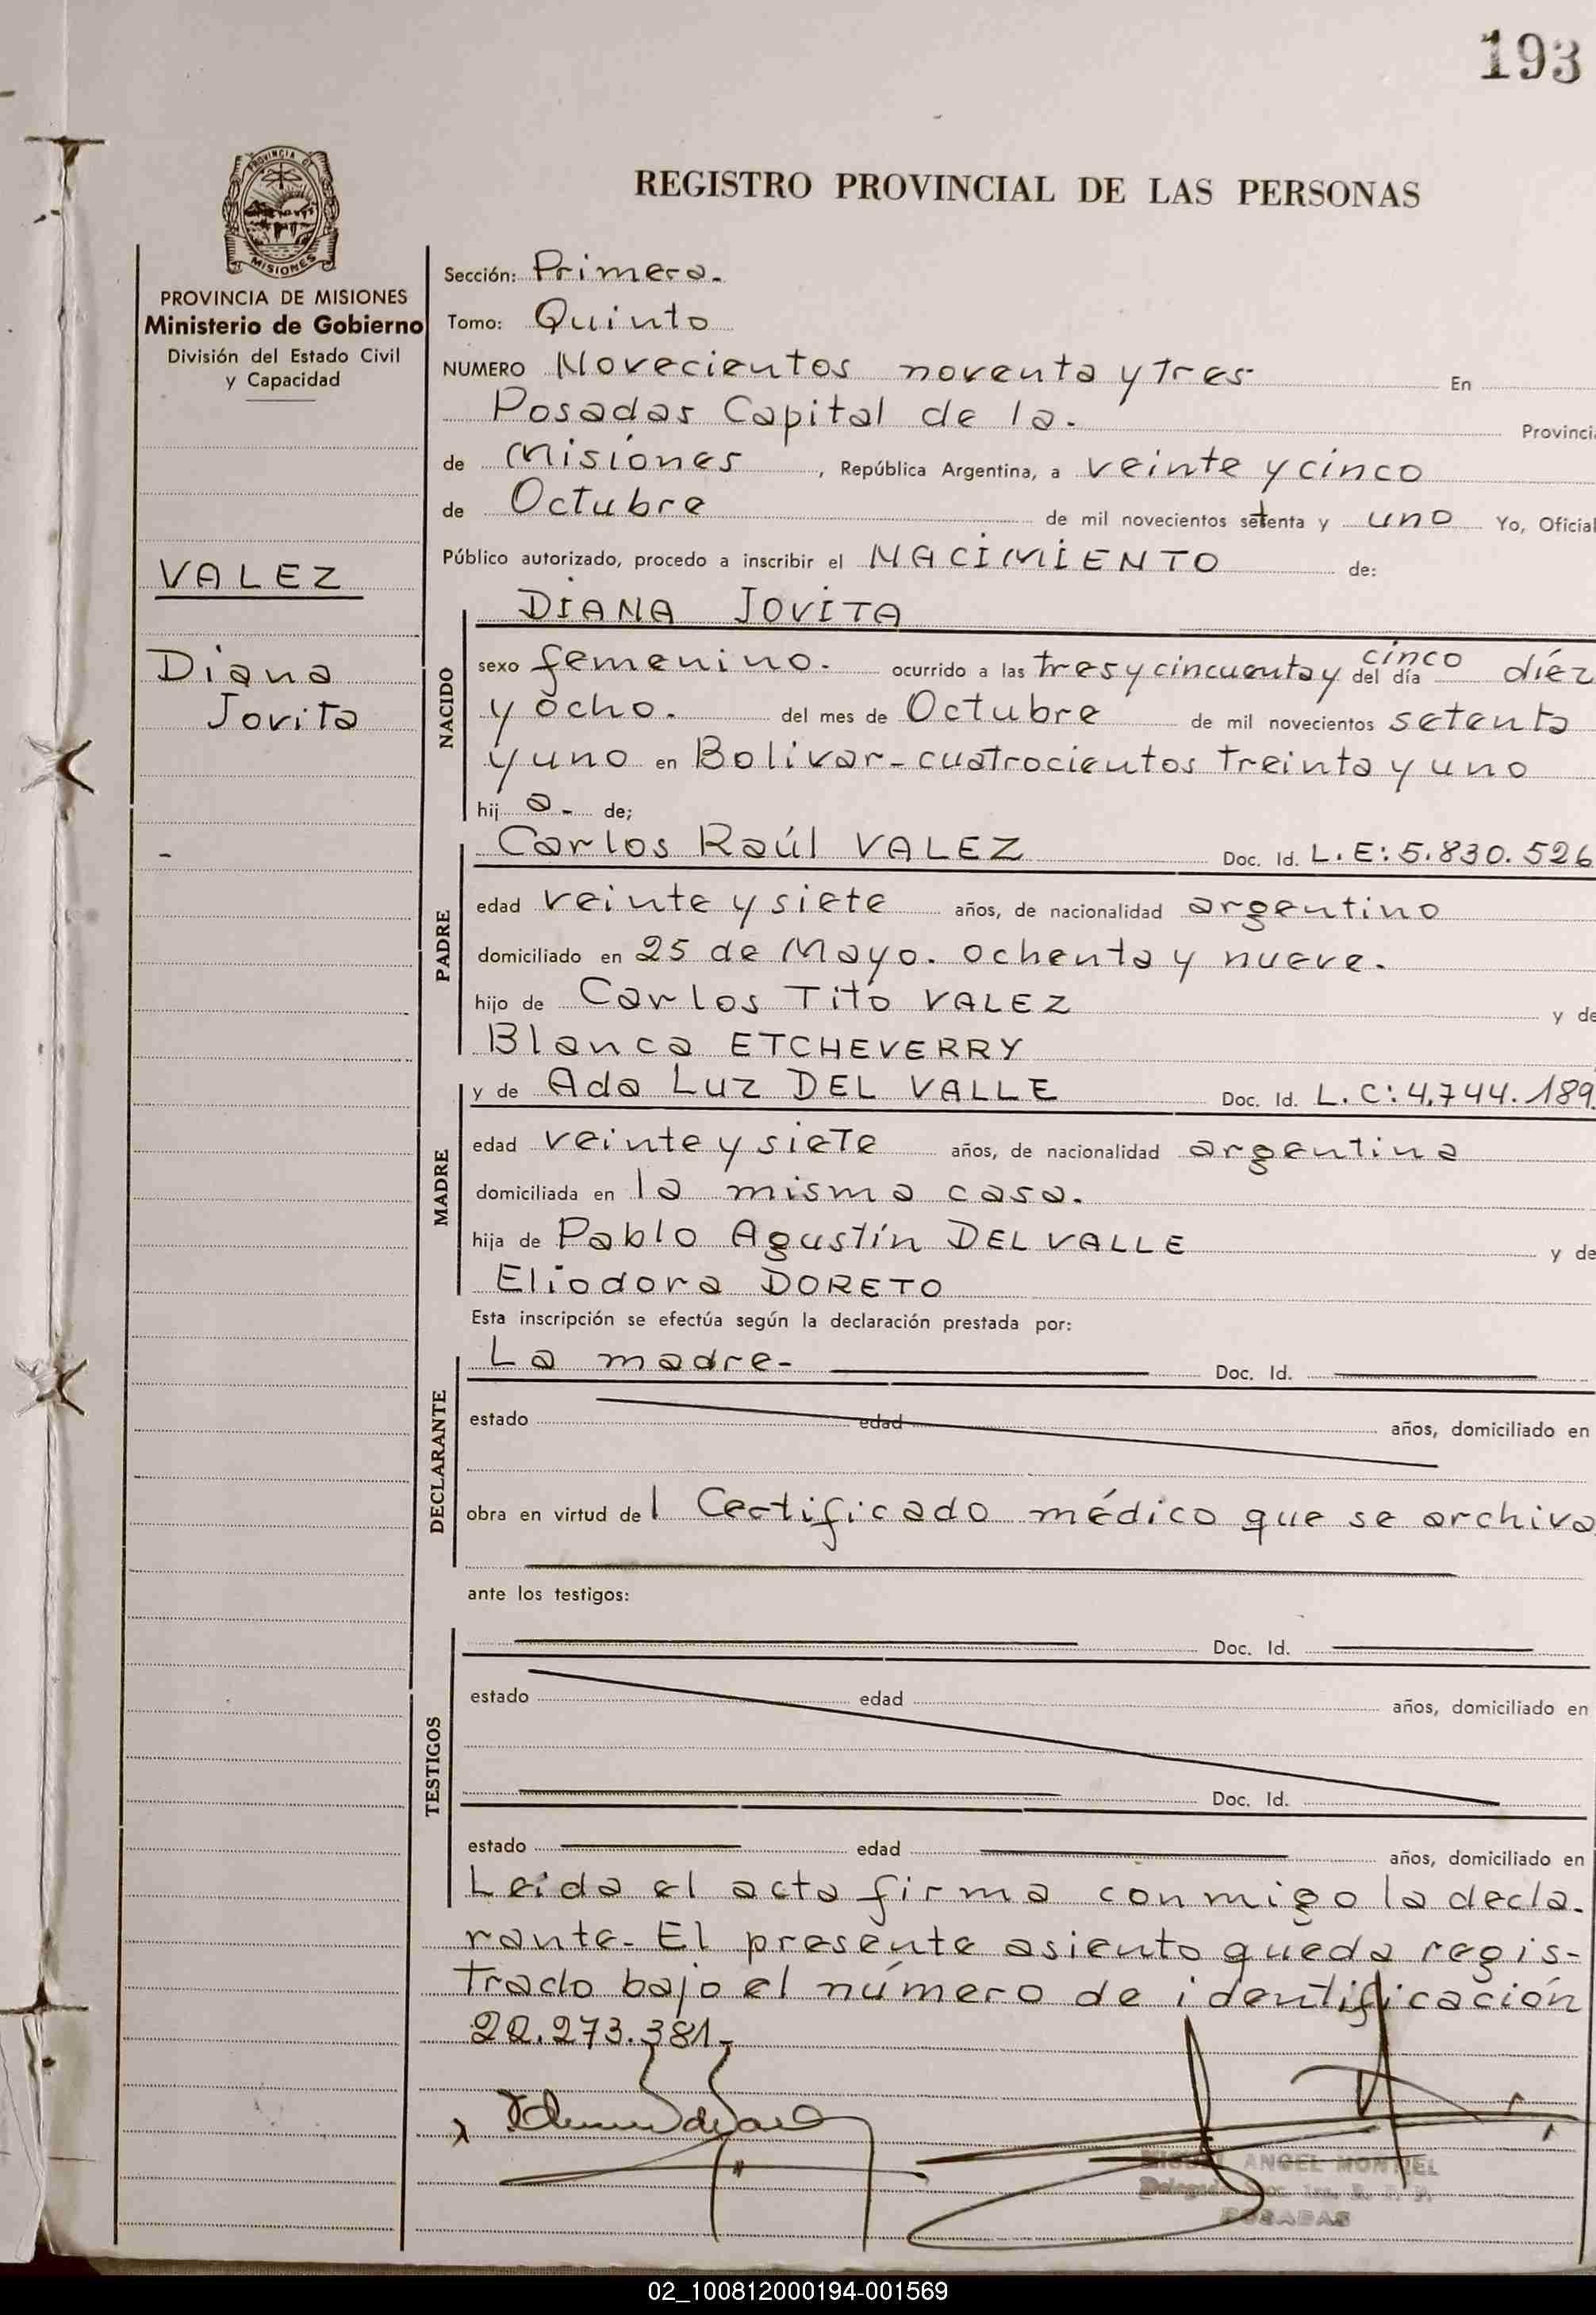 193
PROVINCIA DE
MISIONES
REGISTRO PROVINCIAL DE LAS PERSONAS
PROVINCIA DE MISIONES
Ministerio de Gobierno
División del Estado Civil
y Capacidad
VALEZ
Diana
Jovita
Sección: Primera.
Tomo: Quinto
NUMERO Novecientos noventa y Tres En
Posadas Capital de la. Provincia
de Misiones, República Argentina, a veinte y cinco
de Octubre de mil novecientos setenta y uno Yo, Oficial
Público autorizado, procedo a inscribir el NACIMIENTO de:
DIANA JOVITA
NACIDO
sexo femenino. ocurrido a las tres y cincuenta y cinco del día diez
y ocho. del mes de Octubre de mil novecientos setenta
y uno en Bolivar-cuatrocientos treinta y uno
hij a- de;
PADRE
Carlos Raúl VALEZ Doc. Id. L.E: 5.830.526
edad veinte y siete años, de nacionalidad argentino
domiciliado en 25 de Mayo. ochenta y nueve.
hijo de Carlos Tito VALEZ y de
Blanca ETCHEVERRY
MADRE
y de Ada Luz DEL VALLE Doc. Id. L.C: 4.744.189.
edad veinte y siete años, de nacionalidad argentina
domiciliada en la misma casa.
hija de Pablo Agustín DEL VALLE y de
Eliodora DORETO
Esta inscripción se efectúa según la declaración prestada por:
DECLARANTE
La madre- Doc. Id.
estado edad años, domiciliado en
obra en virtud del Certificado médico que se archiva
ante los testigos:
TESTIGOS
Doc. Id.
estado edad años, domiciliado en
Doc. Id.
estado edad años, domiciliado en
Leida el acta firma conmigo la decla-
rante- El presente asiento queda regis-
trado bajo el número de identificación
22.273.381-
MIGUEL ANGEL MONTIEL
POSADAS
02_100812000194-001569